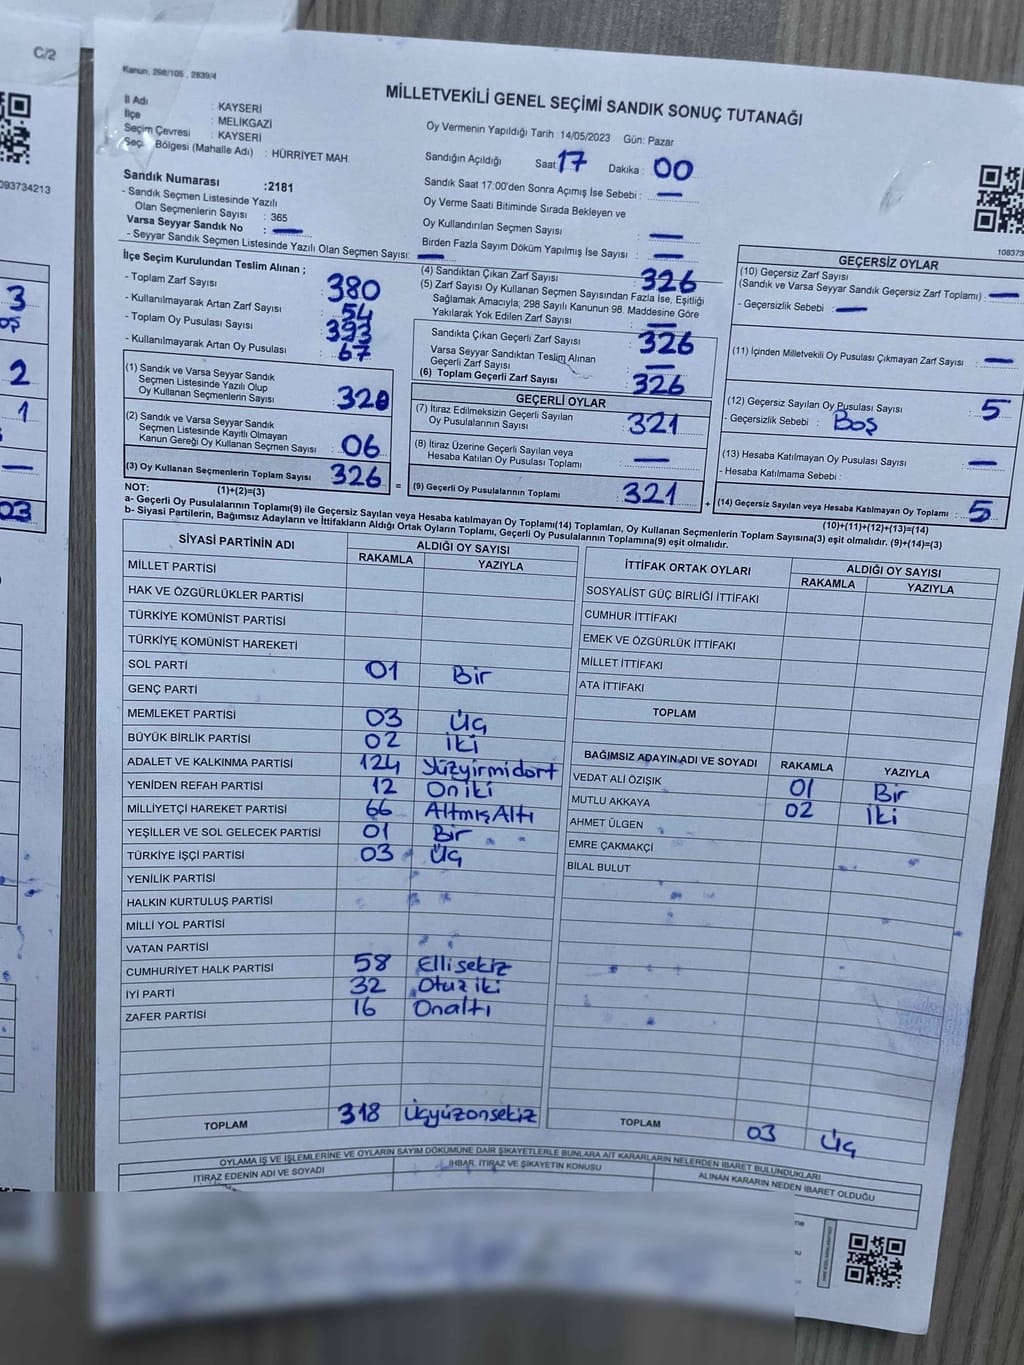 C/2
093734213
3
2
1
03
Kanun, 298/105 , 2839/4
MİLLETVEKİLİ GENEL SEÇİMİ SANDIK SONUÇ TUTANAĞI
İl Adı : KAYSERİ
İlçe : MELİKGAZİ
Seçim Çevresi : KAYSERİ
Bölgesi (Mahalle Adı) : HÜRRİYET MAH.
Oy Vermenin Yapıldığı Tarih :14/05/2023 Gün: Pazar
Sandığın Açıldığı Saat: 17 Dakika : 00
Sandık Saat 17:00'den Sonra Açımış İse Sebebi : —
Oy Verme Saati Bitiminde Sırada Bekleyen ve
Oy Kullandırılan Seçmen Sayısı : —
Birden Fazla Sayım Döküm Yapılmış İse Sayısı : —
Sandık Numarası :2181
- Sandık Seçmen Listesinde Yazılı
Olan Seçmenlerin Sayısı : 365
Varsa Seyyar Sandık No : —
- Seyyar Sandık Seçmen Listesinde Yazılı Olan Seçmen Sayısı: —
İlçe Seçim Kurulundan Teslim Alınan ;
- Toplam Zarf Sayısı : 380
- Kullanılmayarak Artan Zarf Sayısı : 54
- Toplam Oy Pusulası Sayısı : 393
- Kullanılmayarak Artan Oy Pusulası : 67
(1) Sandık ve Varsa Seyyar Sandık
Seçmen Listesinde Yazılı Olup
Oy Kullanan Seçmenlerin Sayısı : 320
(2) Sandık ve Varsa Seyyar Sandık
Seçmen Listesinde Kayıtlı Olmayan
Kanun Gereği Oy Kullanan Seçmen Sayısı : 06
(3) Oy Kullanan Seçmenlerin Toplam Sayısı : 326
(4) Sandıktan Çıkan Zarf Sayısı : 326
(5) Zarf Sayısı Oy Kullanan Seçmen Sayısından Fazla İse, Eşitliği
Sağlamak Amacıyla; 298 Sayılı Kanunun 98. Maddesine Göre
Yakılarak Yok Edilen Zarf Sayısı : —
Sandıkta Çıkan Geçerli Zarf Sayısı : 326
Varsa Seyyar Sandıktan Teslim Alınan
Geçerli Zarf Sayısı : —
(6) Toplam Geçerli Zarf Sayısı : 326
GEÇERLİ OYLAR
(7) İtiraz Edilmeksizin Geçerli Sayılan
Oy Pusulalarının Sayısı : 321
(8) İtiraz Üzerine Geçerli Sayılan veya
Hesaba Katılan Oy Pusulası Toplamı : —
= (9) Geçerli Oy Pusulalarının Toplamı : 321 +
GEÇERSİZ OYLAR
(10) Geçersiz Zarf Sayısı
(Sandık ve Varsa Seyyar Sandık Geçersiz Zarf Toplamı) : —
- Geçersizlik Sebebi : —
(11) İçinden Milletvekili Oy Pusulası Çıkmayan Zarf Sayısı : —
(12) Geçersiz Sayılan Oy Pusulası Sayısı : 5
- Geçersizlik Sebebi : Boş
(13) Hesaba Katılmayan Oy Pusulası Sayısı : —
- Hesaba Katılmama Sebebi :
(14) Geçersiz Sayılan veya Hesaba Katılmayan Oy Toplamı : 5
NOT: (1)+(2)=(3)
(10)+(11)+(12)+(13)=(14)
a- Geçerli Oy Pusulaları Toplamı(9) ile Geçersiz Sayılan veya Hesaba katılmayan Oy Toplamı(14) Toplamları, Oy Kullanan Seçmenlerin Toplam Sayısına(3) eşit olmalıdır. (9)+(14)=(3)
b- Siyasi Partilerin, Bağımsız Adayların ve İttifakların Aldığı Ortak Oyların Toplamı, Geçerli Oy Pusulalarının Toplamına(9) eşit olmalıdır.
SİYASİ PARTİNİN ADI ALDIĞI OY SAYISI
RAKAMLA YAZIYLA
MİLLET PARTİSİ
HAK VE ÖZGÜRLÜKLER PARTİSİ
TÜRKİYE KOMÜNİST PARTİSİ
TÜRKİYE KOMÜNİST HAREKETİ
SOL PARTİ 01 Bir
GENÇ PARTİ
MEMLEKET PARTİSİ 03 Üç
BÜYÜK BİRLİK PARTİSİ 02 iki
ADALET VE KALKINMA PARTİSİ 124 Yüzyirmidört
YENİDEN REFAH PARTİSİ 12 Oniki
MİLLİYETÇİ HAREKET PARTİSİ 66 AltmışAltı
YEŞİLLER VE SOL GELECEK PARTİSİ 01 Bir
TÜRKİYE İŞÇİ PARTİSİ 03 Üç
YENİLİK PARTİSİ
HALKIN KURTULUŞ PARTİSİ
MİLLİ YOL PARTİSİ
VATAN PARTİSİ
CUMHURİYET HALK PARTİSİ 58 Ellisekiz
İYİ PARTİ 32 Otuziki
ZAFER PARTİSİ 16 Onaltı
TOPLAM 318 Üçyüzonsekiz
İTTİFAK ORTAK OYLARI ALDIĞI OY SAYISI
RAKAMLA YAZIYLA
SOSYALİST GÜÇ BİRLİĞİ İTTİFAKI
CUMHUR İTTİFAKI
EMEK VE ÖZGÜRLÜK İTTİFAKI
MİLLET İTTİFAKI
ATA İTTİFAKI
TOPLAM
BAĞIMSIZ ADAYIN ADI VE SOYADI RAKAMLA YAZIYLA
VEDAT ALİ ÖZIŞIK 01 Bir
MUTLU AKKAYA 02 İki
AHMET ÜLGEN
EMRE ÇAKMAKÇİ
BİLAL BULUT
TOPLAM 03 Üç
OYLAMA İŞ VE İŞLEMLERİNE VE OYLARIN SAYIM DÖKÜMÜNE DAİR ŞİKAYETLERLE BUNLARA AİT KARARLARIN NELERDEN İBARET BULUNDUKLARI
İTİRAZ EDENİN ADI VE SOYADI İHBAR, İTİRAZ VE ŞİKAYETİN KONUSU ALINAN KARARIN NEDEN İBARET OLDUĞU